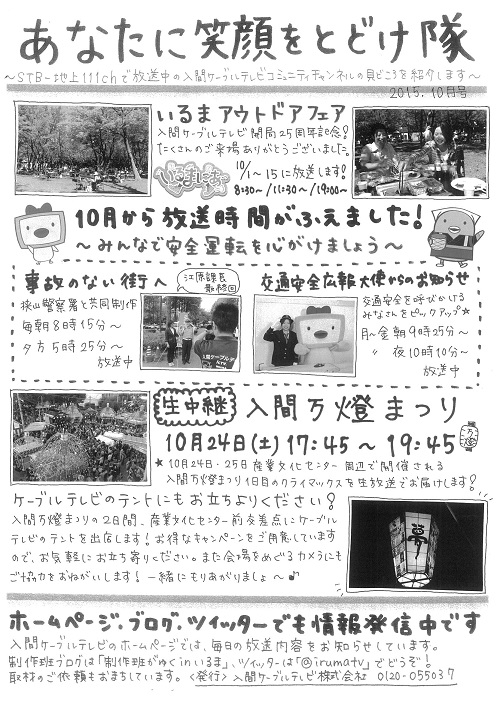 あなたに笑顔をとどけ隊
～STB-地上111chで放送中の入間ケーブルテレビコミュニティチャンネルの見どころを紹介します～
2015.10月号
いるまアウトドアフェア
入間ケーブルテレビ開局25周年記念！
たくさんのご来場ありがとうございました。
10/1～15に放送します！
8:30～/11:30～/19:00～
10月から放送時間がふえました！
～みんなで安全運転を心がけましょう～
事故のない街へ
江原課長
最終回
狭山警察署と共同制作
毎朝8時15分～
夕方5時25分～
放送中
交通安全広報大使からのお知らせ
交通安全を呼びかける
みなさんをピックアップ★
月～金朝9時25分～
〃 夜10時10分～
放送中
生中継 入間万燈まつり
10月24日(土)17:45～19:45
万燈
★10月24日・25日産業文化センター周辺で開催される
入間万燈まつり1日目のクライマックスを生放送でお届けします！
ケーブルテレビのテントにもお立ちよりください！
入間万燈まつりの2日間、産業文化センター前交差点にケーブル
テレビのテントを出店します！お得なキャンペーンをご用意しています
ので、お気軽にお立ち寄りください。また会場をめぐるカメラにも
ご協力をおねがいします！一緒にもりあがりましょ～♪
夢
ホームページ、ブログ、ツイッターでも情報発信中です
入間ケーブルテレビのホームページでは、毎日の放送内容をお知らせしています。
制作班ブログは「制作班がゆくinいるま」、ツイッターは「@irumatv」でどうぞ！
取材のご依頼もおまちしています。<発行>入間ケーブルテレビ株式会社 0120-055037